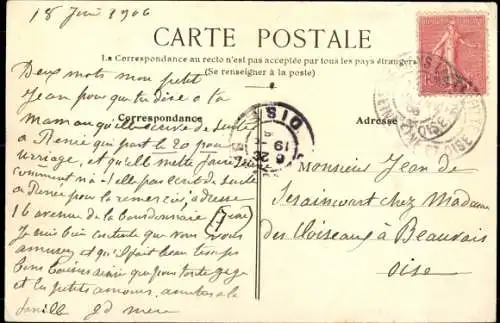 18 Juin 1906
CARTE POSTALE
La Correspondance au recto n'est pas acceptée par tous pays étrangers
(Se renseigner à la poste)
Correspondance
Adresse
Deux mots mon petit
Jean pour que tu dise a ta
Maman qu'elle écrive de suite
a Renée qui part le 20 pour
et qu'elle mette
comment n'a-t-elle pas écrit de suite
a Renée pour la remercier, adresse
16 avenue de la Bourdonnais
Je suis bien contente que vous vous
amusez et qu'il fait beau temps
bons baisers
et les petits amours, a
famille gd mère
Monsieur Jean de
Seraincourt chez Madame
des Cloiseaux à Beauvais
Oise
OISE
SEINE ET OISE
19